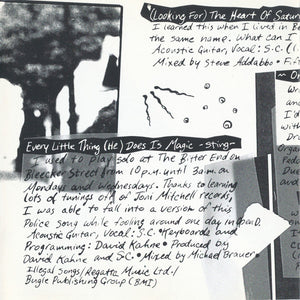 (Looking For) The Heart Of Satur
I learned this when I lived in Be
the same name. What can I
Acoustic Guitar, Vocal: S.C. (1
Mixed by Steve Addabbo • Fif
Every Little Thing (He) Does Is Magic -sting-
I used to play solo at The Bitter End on
Bleecker Street from 10 p.m. until 3 a.m. on
Mondays and Wednesdays. Thanks to learning
lots of tunings off of Joni Mitchell records,
I was able to fall into a version of this
Police song while fooling around one day in
Acoustic Guitar, Vocal: S.C. • Keyboards and
Programming: David Kahne • Produced by
David Kahne and SC. • Mixed by Michael Brauer •
Illegal Songs/Regatta Music Ltd./
Bugle Publishing Group (BMI)
~ O
Wri
and
I'd
wit
Dra
Org
Ped
Due
and